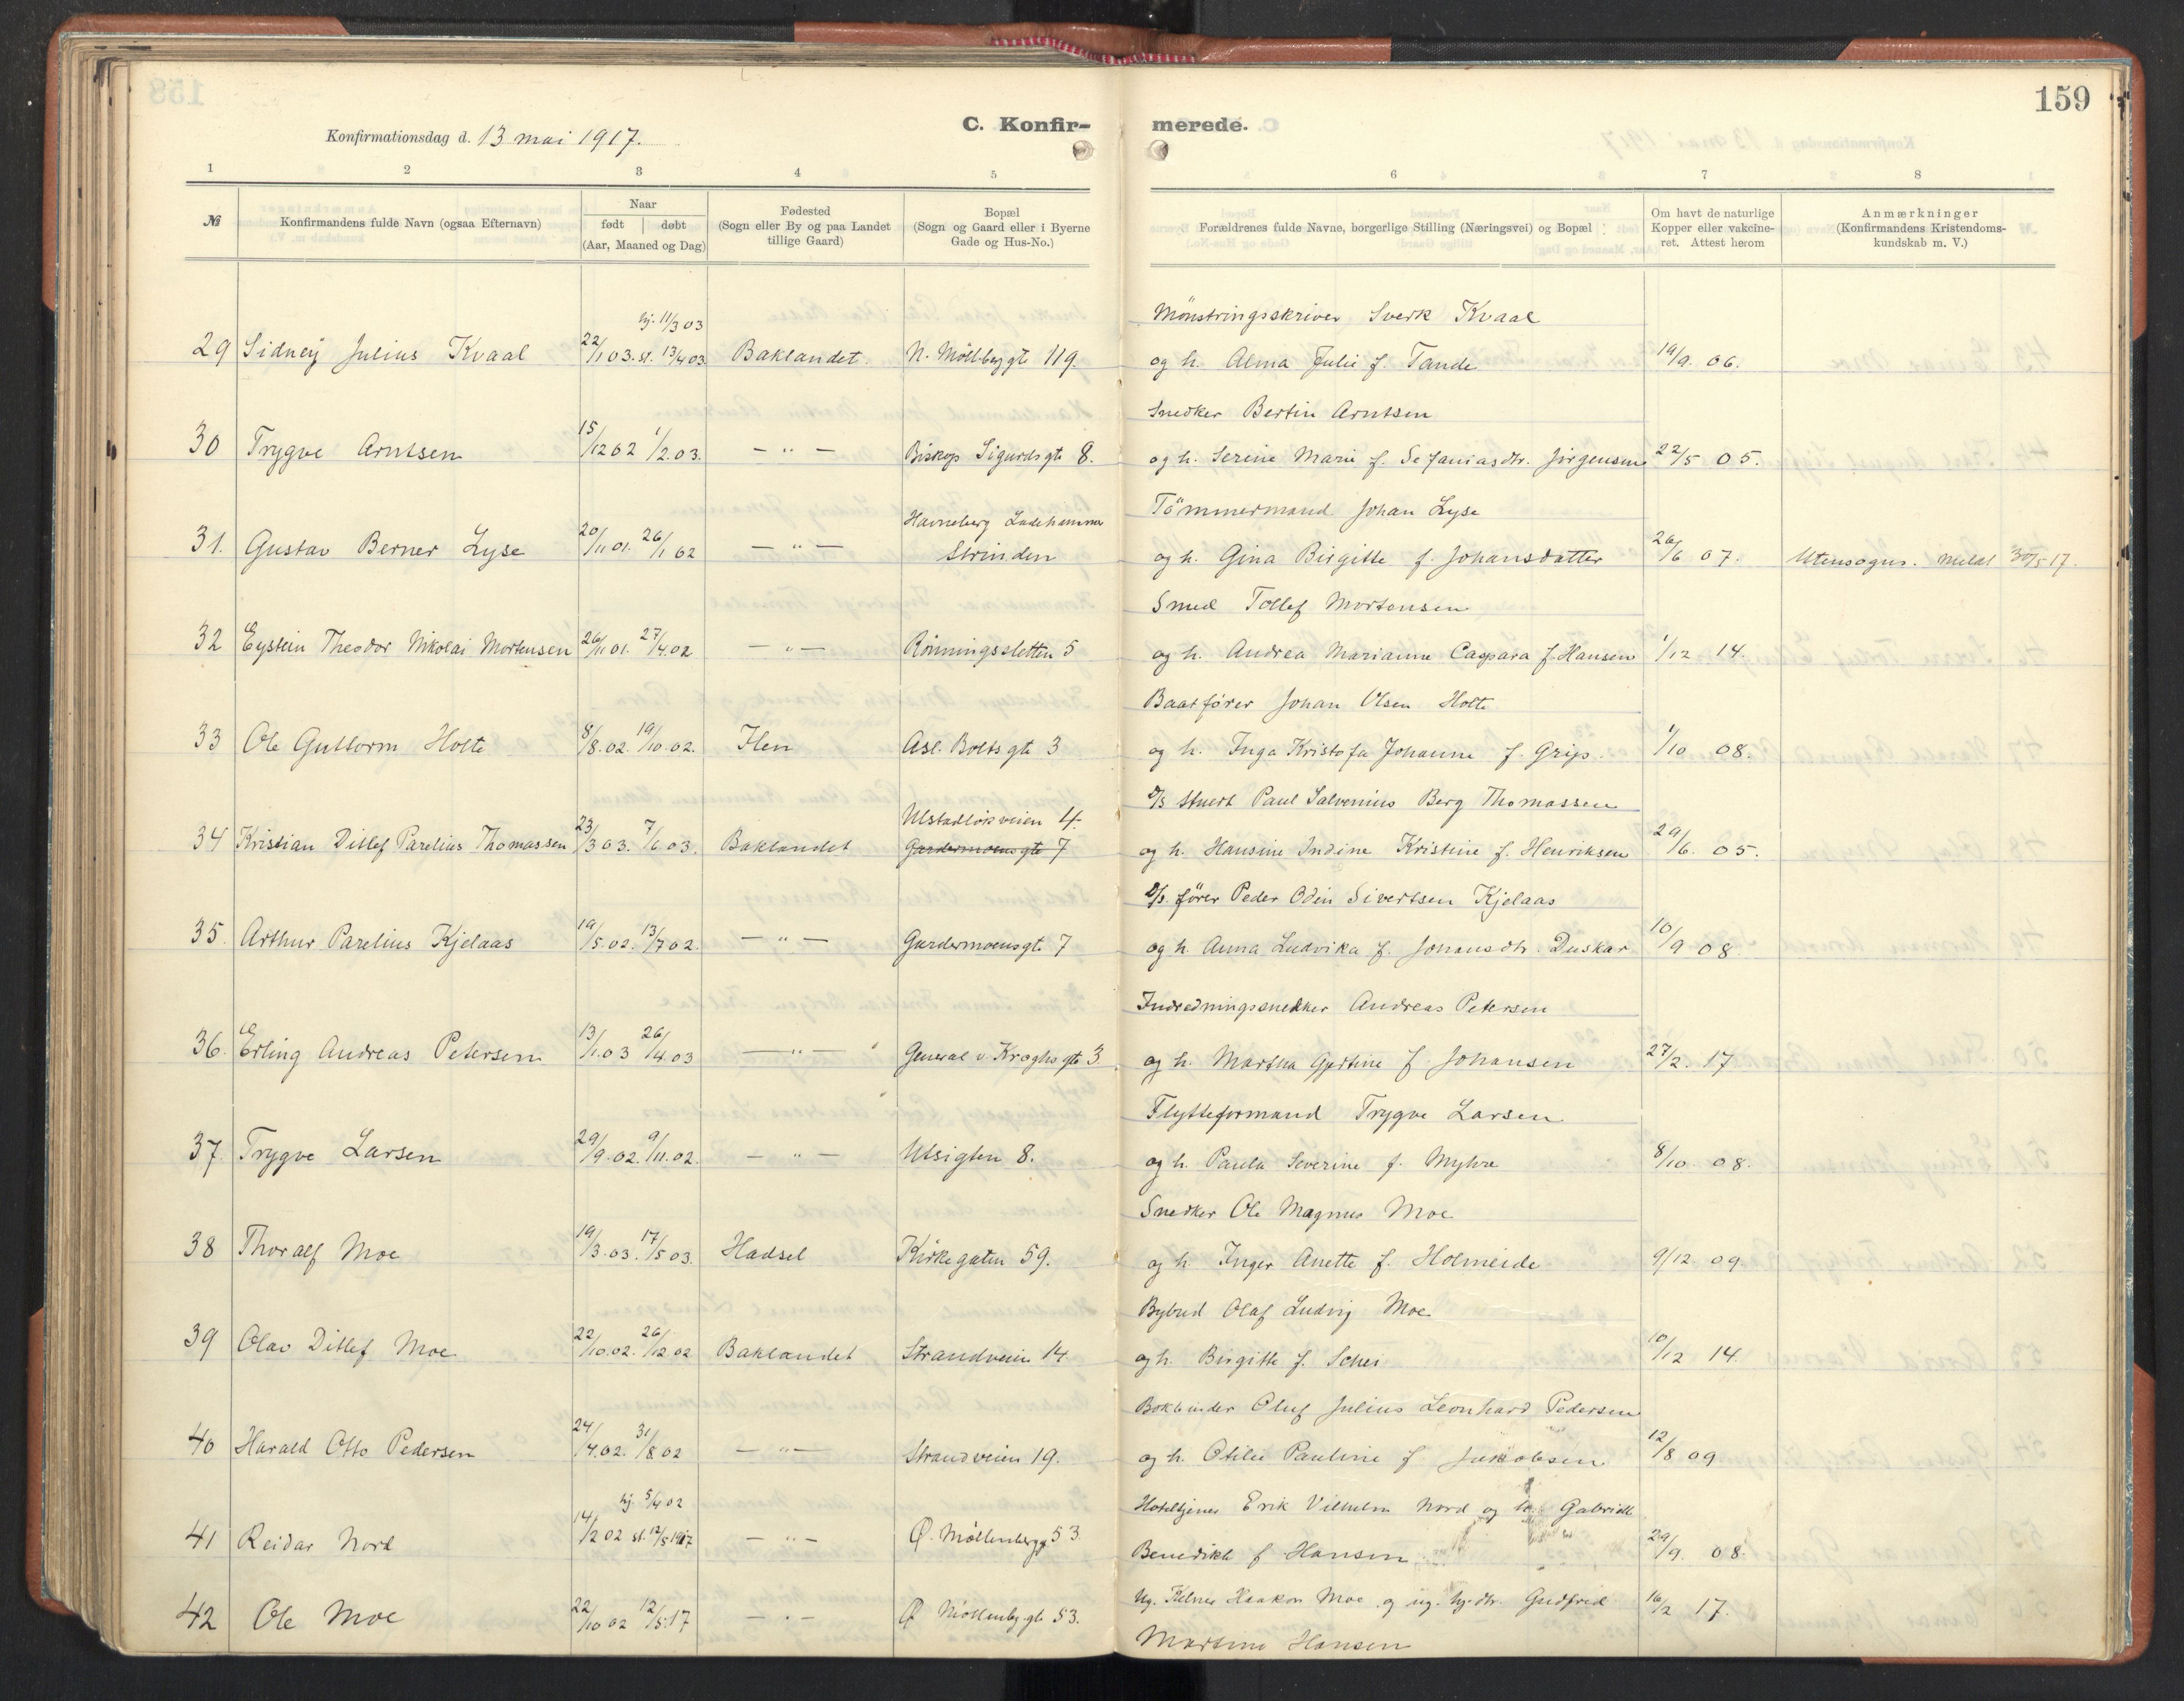 159
C. Konfir- merede.
Konfirmationsdag d. 13 mai 1917.
1 2 3 4 5 6 7 8
№ Konfirmandens fulde Navn (ogsaa Efternavn)
Naar
født døbt
(Aar, Maaned og Dag)
Fødested
(Sogn eller By og paa Landet
tillige Gaard)
Bopæl
(Sogn og Gaard eller i Byerne
Gade og Hus-No.)
Forældrenes fulde Navne, borgerlige Stilling (Næringsvei) og Bopæl
Om havt de naturlige
Kopper eller vakcine-
ret. Attest herom
Anmærkninger
(Konfirmandens Kristendoms-
kundskab m. V.)
hj. 11/3 03 Mönstringsskriver Sverk Kvaal
29 Sidney Julius Kvaal 22/1 03. st. 13/4 03 Baklandet. N. Möllebggt 119. og h. Alma Julie f. Tande 19/9. 06.
Snedker Bertin Arntsen
30 Trygve Arntsen 15/12 02 1/2. 03. — " — Biskop Sigurdsgt 8. og h. Serine Marie f. Sefaniasdtr. Jörgensen 22/5 05.
Havneberg Ladehammer Tömmermand Johan Lyse
31. Gustav Berner Lyse 20/11 01. 26/1 02 — " — Strinden og h. Gina Birgitte f. Johansdatter 26/6 07. Utensogns. meldt 30/5 17.
Smed Tollef Mortensen
32 Eystein Theodor Nikolai Mortensen 26/11 01. 27/4. 02 — " — Rönningsletten 5 og h. Andrea Marianne Caspara f. Hansen 1/12 14.
Baatfører Johan Olsen Holte
33 Ole Guttorm Holte 8/8. 02. 19/10. 02. Ilen Asl. Boltsgt 3 og h. Inga Kristofa Johanne f. Grip. 1/10 08.
Ulstadlökveien 4. D/S Stuert Paul Salvenius Berg Thomassen
34 Kristian Ditlef Parelius Thomassen 23/3 03. 7/6 03. Baklandet Gardermoensgt 7 og h. Hansine Indine Kristine f. Henriksen 29/6. 05.
D/S. fører Peder Odin Sivertsen Kjelaas
35. Arthur Parelius Kjelaas 19/5. 02. 13/7 02. — " — Gardermoensgt. 7 og h. Anna Ludvika f. Johansdtr. Duskar 10/9 08.
Indredningssnedker Andreas Petersen
36. Erling Andreas Petersen 13/1. 03 26/4. 03 — " — General v. Kroghsgt 3. og h. Martha Gjertine f. Johansen 27/2. 17
Flytteformand Trygve Larsen
37. Trygve Larsen 29/9. 02. 9/11. 02. — " — Utsigten 8. og h. Paula Severine f. Myhre 8/10 08.
Snedker Ole Magnus Moe
38 Thoralf Moe 19/3. 03. 17/5 03. Hadsel Kirkegaten 59. og h. Inger Anette f. Holmeide 9/12 09.
Bybud Olaf Ludvig Moe
39 Olav Ditlef Moe 22/10. 02. 26/12. 02 Baklandet Strandveien 14 og h. Birgitte f. Schei 10/12 14.
Bokbinder Oluf Julius Leonhard Pedersen
40 Harald Otto Pedersen 24/7. 02. 31/8. 02 — " — Strandveien 19. og h. Otilie Pauline f. Jakobsen 12/8 09
hj. 5/4 02 Hoteltjener Erik Vilhelm Nord og h. Gabrielle
41 Reidar Nord 14/2 02 st. 12/5 1917 — " — Ø. Möllenbergg 53 Benedikte f Hansen 29/9. 08.
Ug. Kelner Haakon Moe og ug. hj. dtr. Gudfrid
42 Ole Moe 22/10 02 12/5. 17 — " — Ø Möllenbg.gt 53. Martine Hansen 16/2 17.